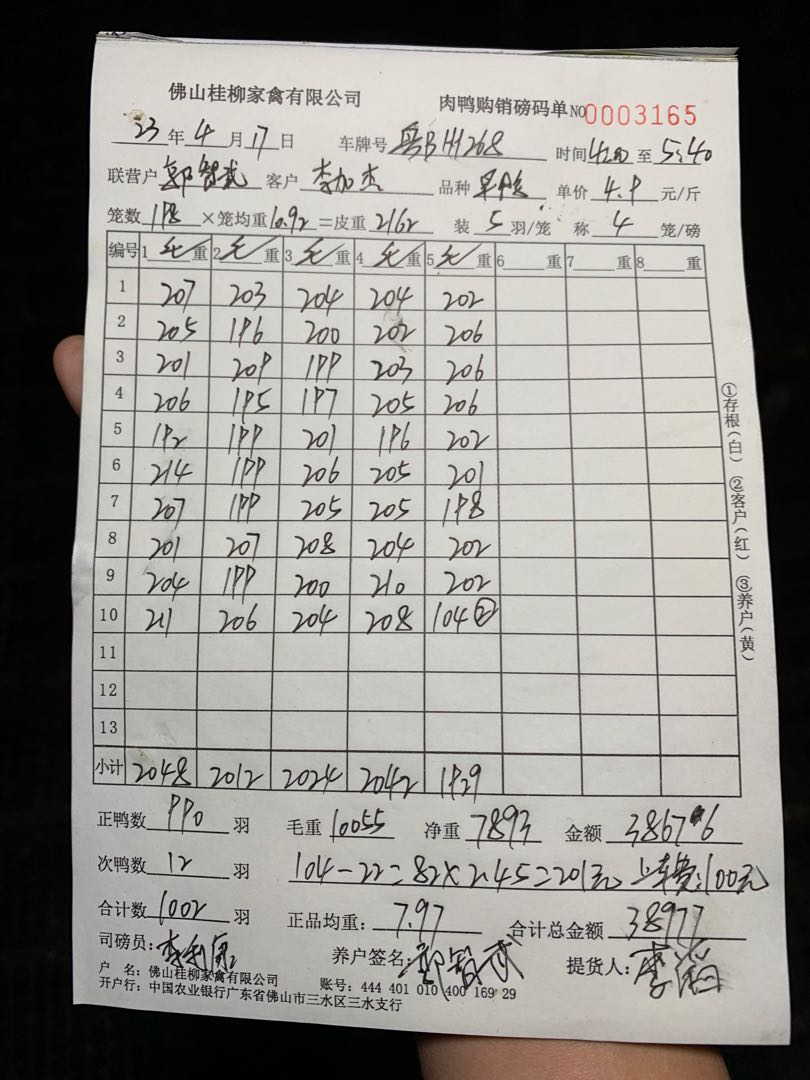 佛山桂柳家禽有限公司 肉鸭购销磅码单 NO 0003165
23 年 4 月 17 日 车牌号 至 5:40 时间
联营户 郭智武 客户 李加杰 品种 单价 4.9 元/斤
笼数 198 ×笼均重 10.92 =皮重 2162 装 5 羽/笼 称 4 笼/磅
编号 1 毛 重 2 毛 重 3 毛 重 4 毛 重 5 毛 重 6 重 7 重 8 重
1 207 203 204 204 202
2 205 196 200 202 206
3 201 209 199 203 206
4 206 195 197 205 206
5 192 199 201 196 202
6 214 199 206 205 201
7 207 199 205 205 198
8 201 207 208 204 202
9 204 199 200 210 202
10 211 206 204 208 104 ②
11
12
13
小计 2048 2012 2024 2042 1929
正鸭数 990 羽 毛重 10055 净重 7893 金额 38676
次鸭数 12 羽 104-22=82×2.45=201元 上车费:100元
合计数 1002 羽 正品均重: 7.97 合计总金额 38977
司磅员: 养户签名: 郭智武 提货人: 李滔
户 名: 佛山桂柳家禽有限公司 账号: 444 401 010 400 169 29
开户行: 中国农业银行广东省佛山市三水区三水支行
①存根(白) ②客户(红) ③养户(黄)